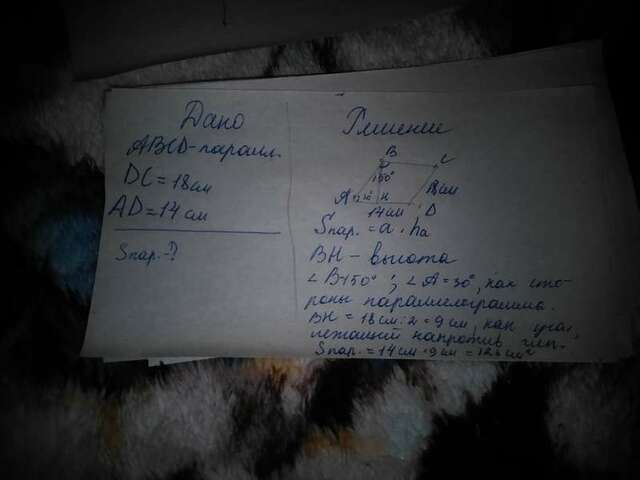 Дано
ABCD-парал.
DC = 18см
AD = 14 см
Sпар.-?
Решение
B
C
150°
A
30°
H
18см
14см
D
Sпар. = a · ha
BH - высота
∠B=150°; ∠A = 30°, как сто-
роны параллелограмма.
BH = 18 см : 2 = 9 см, как
лежащий напротив
Sпар. = 14 см · 9 см = 126 см²